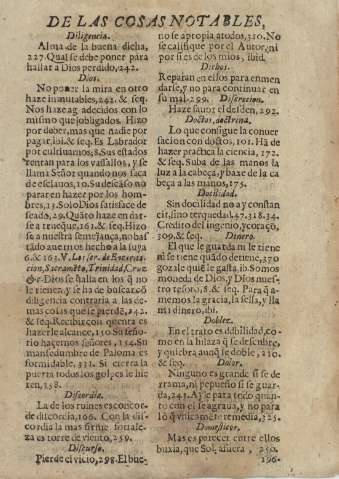 DE LAS COSAS NOTABLES,
Diligencia.
Alma de la buena dicha,
227. Qual se debe poner para
hallar a Dios perdido, 242.
Dios.
No poner la mira en otro
haze inmutables, 243. & seq.
Nos haze agradecidos con lo
mismo que jobligados. Hizo
por deber, mas que nadie por
pagar, ioi. & seq. Es Labrador
por cultivarnos; 8. Sus estados
rentan para los vassallos, y se
llama Señor quando nos saca
de esclauos, 10. Su descāso no
parar en hazer por los hom-
bres, 23. Solo Dios satisface de
seado, 29. Quāto haze en dar-
se a trueque, 161. & seq. Hizo
se a nuestra semejança, no bas
tādo auernos hecho a la suya
6. & 163. V.
Sacramēto, Trinidad, Cruz
Dios se halla en los q̄ no
le tienen, y se ha de buscar cō
diligencia contraria a las de-
mas cosas que se pierdē, 242.
& seq. Recibir cō quien es es
hazerle alcance, 150. Su seño-
rio haze mos señores, 154. Su
mansedumbre de Paloma es
formidable, 331. Si cierra la
puerta todos los golpes le hie
ren, 158.
Discordia.
La de los ruines es concor-
dia, 166. Con la dis-
cordia la mas firme fortale-
za es torre de viento, 259.
Discurso.
Pierde el vicio, 298. El bue-
no se apropia a todos, 310. No
se califique por el Autor, ni
por si es de los mios, ibid.
Dichos.
Reparan en ellos para enmen
darse, y no para continuar en
su mal. 299. Discrecion.
Haze sauor el desden, 292.
Doctos, doctrina.
Lo que consigue la conuer
sacion con doctos, 101. Hā de
hazer practica la ciencia, 172.
& seq. Suba de las manos la
luz a la cabeça, y baxe de la ca
beça a las manos, 175.
Docilidad.
Sin docilidad no ay constan
cia, sino terquedad, 47. 318. 34.
Credito del ingenio, y coraçō,
309. & seq. Dinero.
El que le guarda ni le tiene
ni se tiene quādo detiene, 270
gozale quiē le gasta, ib. Somos
moneda de Dios, y Dios nues-
tro tesoro, 8. & seq. Para q̄ a-
memos la gracia, la sella, y lla
ma dinero, ibi.
Doblez.
En el trato es debilidad, co-
mo en la hilaza q̄ se descubre,
y quiebra aunq̄ se doble, 210
& seq. Dolor.
Ninguno es grande si se de-
rrama, ni pequeño si se guar-
da, 241. para todo quan-
to con el se agraua, y no para
lo q̄ vnicamente remedia, 325.
Domesticos.
Mas es parecer entre ellos
buxia, que Sol, afuera, 250.
296.